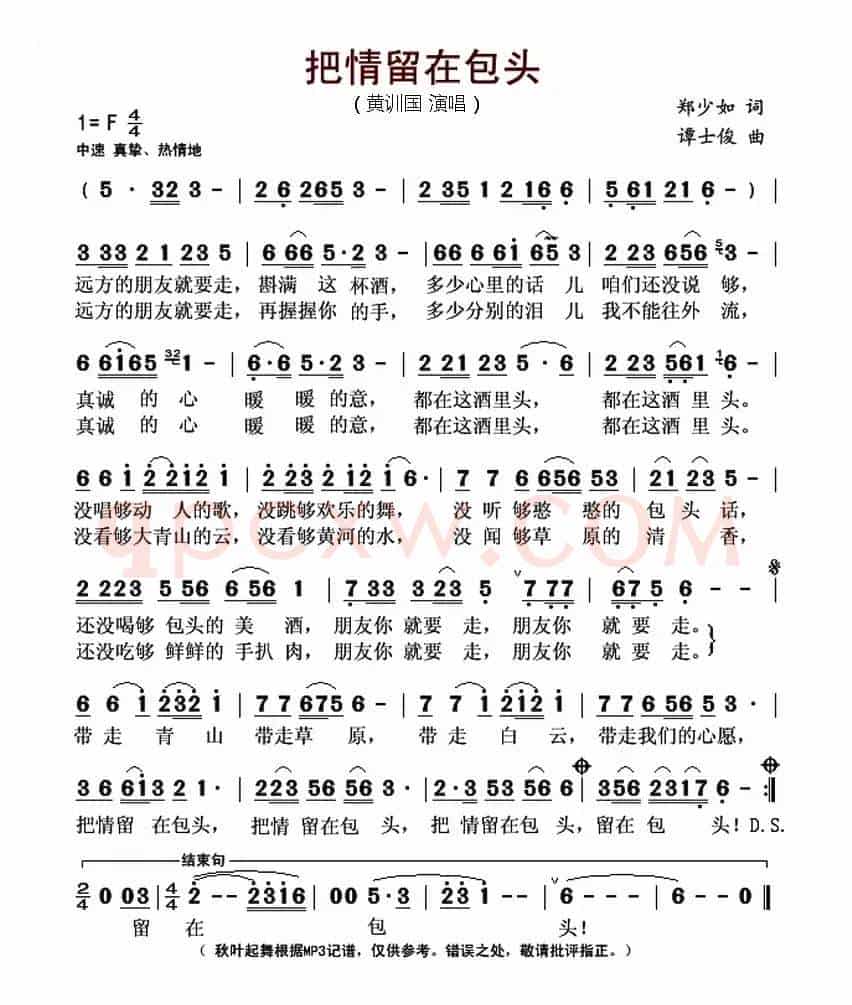 把情留在包头
（黄训国 演唱）
1=F 4/4
郑少如 词
中速 真挚、热情地
谭士俊 曲
( 5 · 32 3 - | 2 6 265 3 - | 2 35 1 2 16 6 | 5 61 21 6 - ) |
3 33 2 1 23 5 | 6 66 5·2 3 - | 66 6 61 65 3 | 2 23 656 3 - |
远方的朋友就要走，斟满 这 杯酒，多少心里的话 儿 咱们还没说 够，
远方的朋友就要走，再握握你 的手，多少分别的泪 儿 我不能往外 流，
6 6165 1 - | 6·6 5·2 3 - | 2 21 23 5 · 6 | 2 23 561 6 - |
真诚 的 心 暖 暖 的意， 都在这酒里头， 都在这酒 里 头。
真诚 的 心 暖 暖 的意， 都在这酒里头， 都在这酒 里 头。
6 6 1 2 212 1 | 3 3 23 2 12 6 · | 7 7 6 656 53 | 21 23 5 - |
没唱够动 人的歌，没跳够欢乐的舞， 没 听 够憨 憨的 包 头 话，
没看够大青山的云，没看够黄河的水， 没 闻 够草 原的 清 香，
qpcxw.com
2 223 5 56 6 56 1 | 7 33 3 23 5 | 7 77 67 5 6 - - |
还没喝够 包头的 美 酒，朋友你 就 要 走，朋友你 就 要 走。
还没吃够 鲜鲜的 手扒 肉，朋友你 就 要 走，朋友你 就 要 走。
6 6 1 232 1 | 7 7 675 6 - | 7 7 1 212 1 | 56 56 5 3 · |
带 走 青 山 带走草 原， 带 走 白 云，带走我们的心愿，
3 6 613 2 1· | 223 56 56 3 | 2·3 53 56 | 356 2317 6 - :‖
把情留 在包头， 把情 留在包 头，把 情留在包 头，留在 包 头！D.S.
结束句
2/4 0 03 | 4/4 2 - - 2316 | 00 5·3 | 23 1 - | 6 - - - | 6 - 0 ‖
留 在 包 头！
（ 秋叶起舞根据MP3记谱，仅供参考。错误之处，敬请批评指正。）